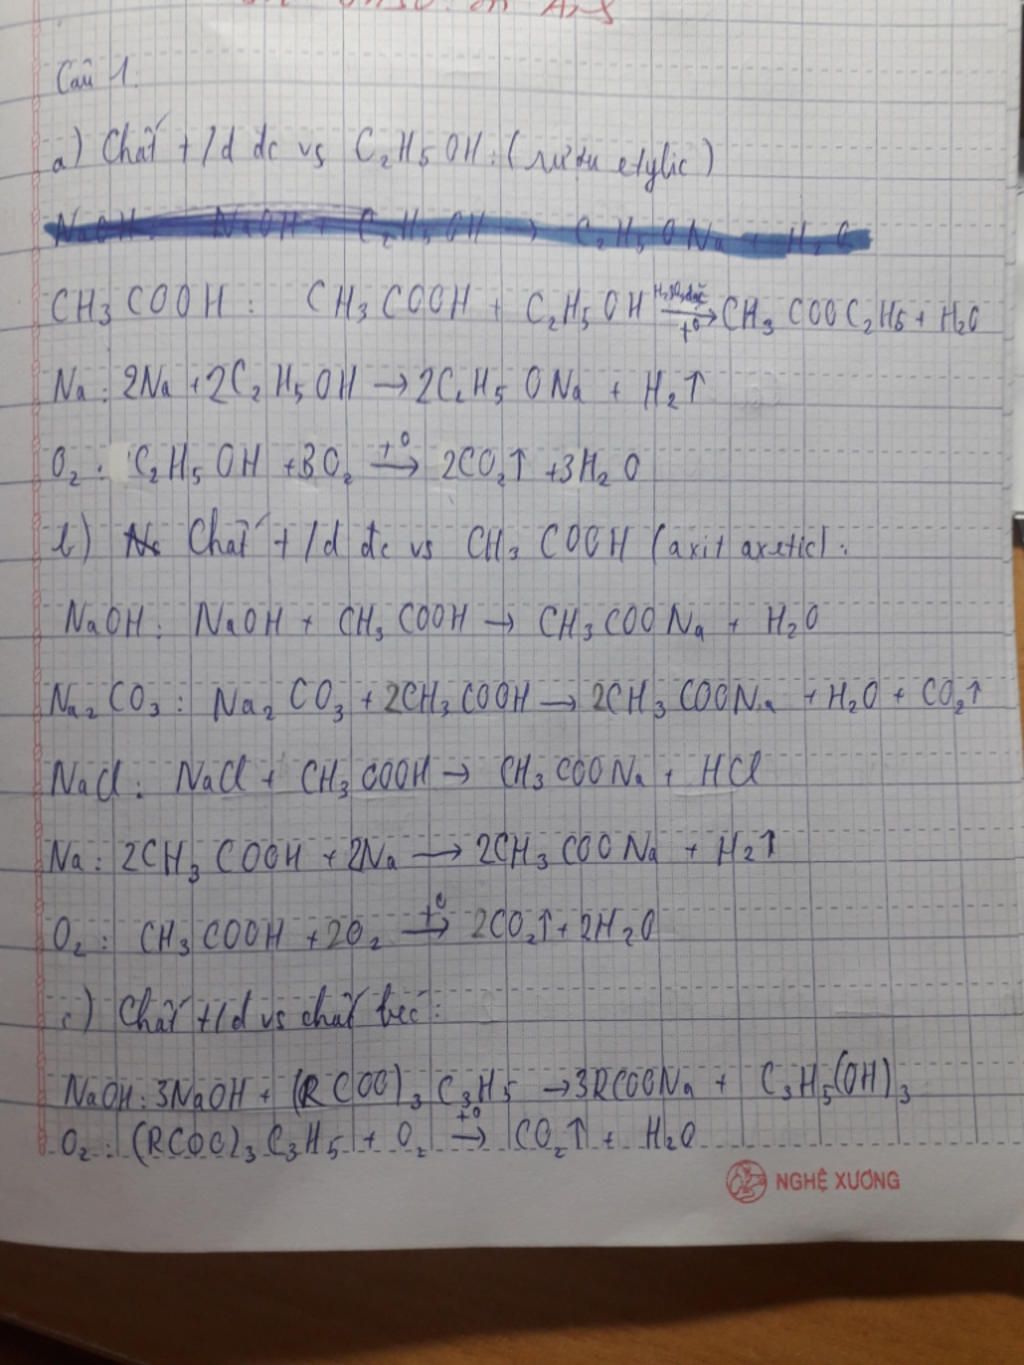 Câu 1.
a) Chất t/d đc vs C₂H₅OH: (rượu etylic)
NaOH: NaOH + C₂H₅OH → C₂H₅ONa + H₂O
CH₃COOH: CH₃COOH + C₂H₅OH H₂SO₄đặc ⟶ t⁰ CH₃COOC₂H₅ + H₂O
Na: 2Na + 2C₂H₅OH → 2C₂H₅ONa + H₂↑
O₂: C₂H₅OH + 3O₂ t⁰→ 2CO₂↑ + 3H₂O
b) Chất t/d đc vs CH₃COOH (axit axetic):
NaOH: NaOH + CH₃COOH → CH₃COONa + H₂O
Na₂CO₃: Na₂CO₃ + 2CH₃COOH → 2CH₃COONa + H₂O + CO₂↑
NaCl: NaCl + CH₃COOH → CH₃COONa + HCl
Na: 2CH₃COOH + 2Na → 2CH₃COONa + H₂↑
O₂: CH₃COOH + 2O₂ t⁰→ 2CO₂↑ + 2H₂O
c) Chất t/d vs chất béo:
NaOH: 3NaOH + (RCOO)₃C₃H₅ → 3RCOONa + C₃H₅(OH)₃
O₂: (RCOO)₃C₃H₅ + O₂ t⁰→ CO₂↑ + H₂O
NGHỆ XƯƠNG